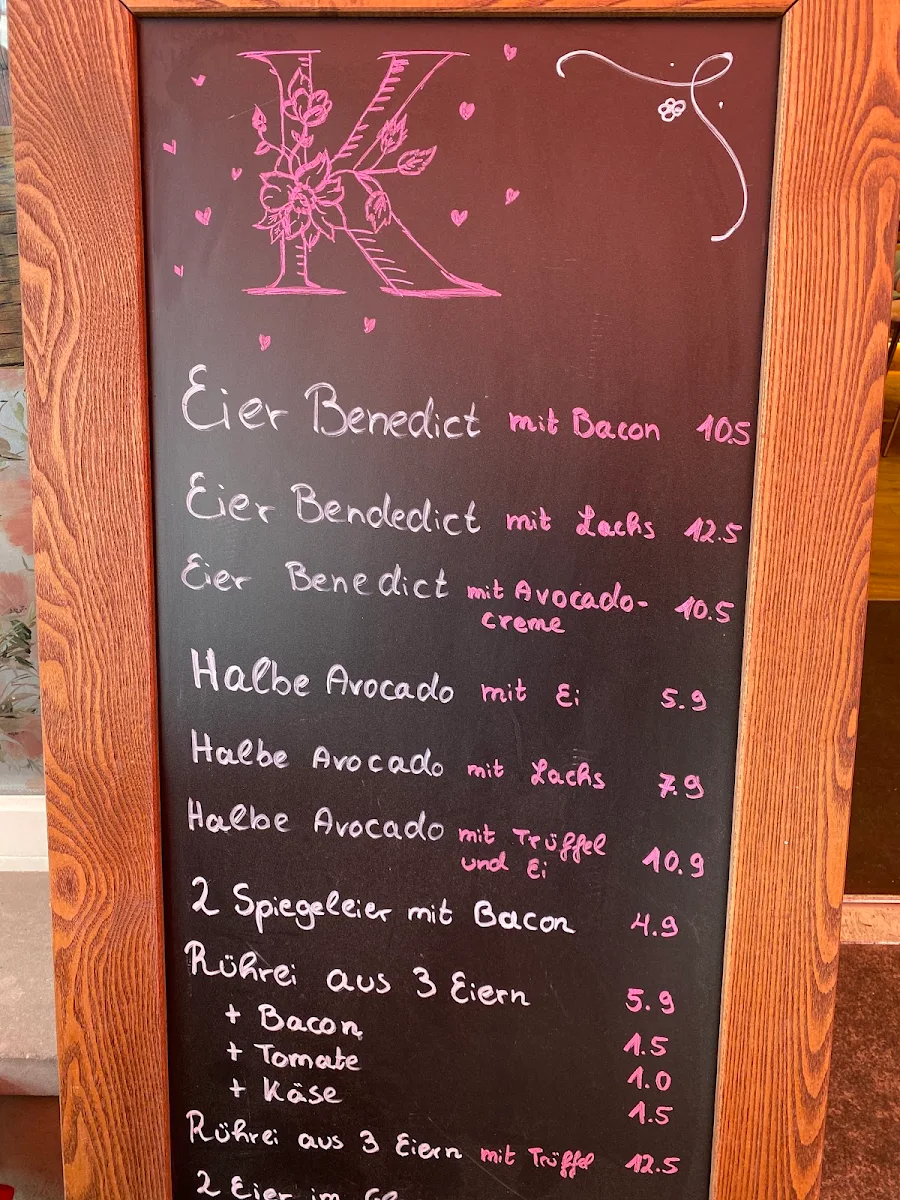 K
Eier Benedict mit Bacon 10.5
Eier Bendedict mit Lachs 12.5
Eier Benedict mit Avocado- 10.5
creme
Halbe Avocado mit Ei 5.9
Halbe Avocado mit Lachs 7.9
Halbe Avocado mit Trüffel 10.9
und Ei
2 Spiegeleier mit Bacon 4.9
Rührei aus 3 Eiern 5.9
+ Bacon 1.5
+ Tomate 1.0
+ Käse 1.5
Rührei aus 3 Eiern mit Trüffel 12.5
2 Eier im